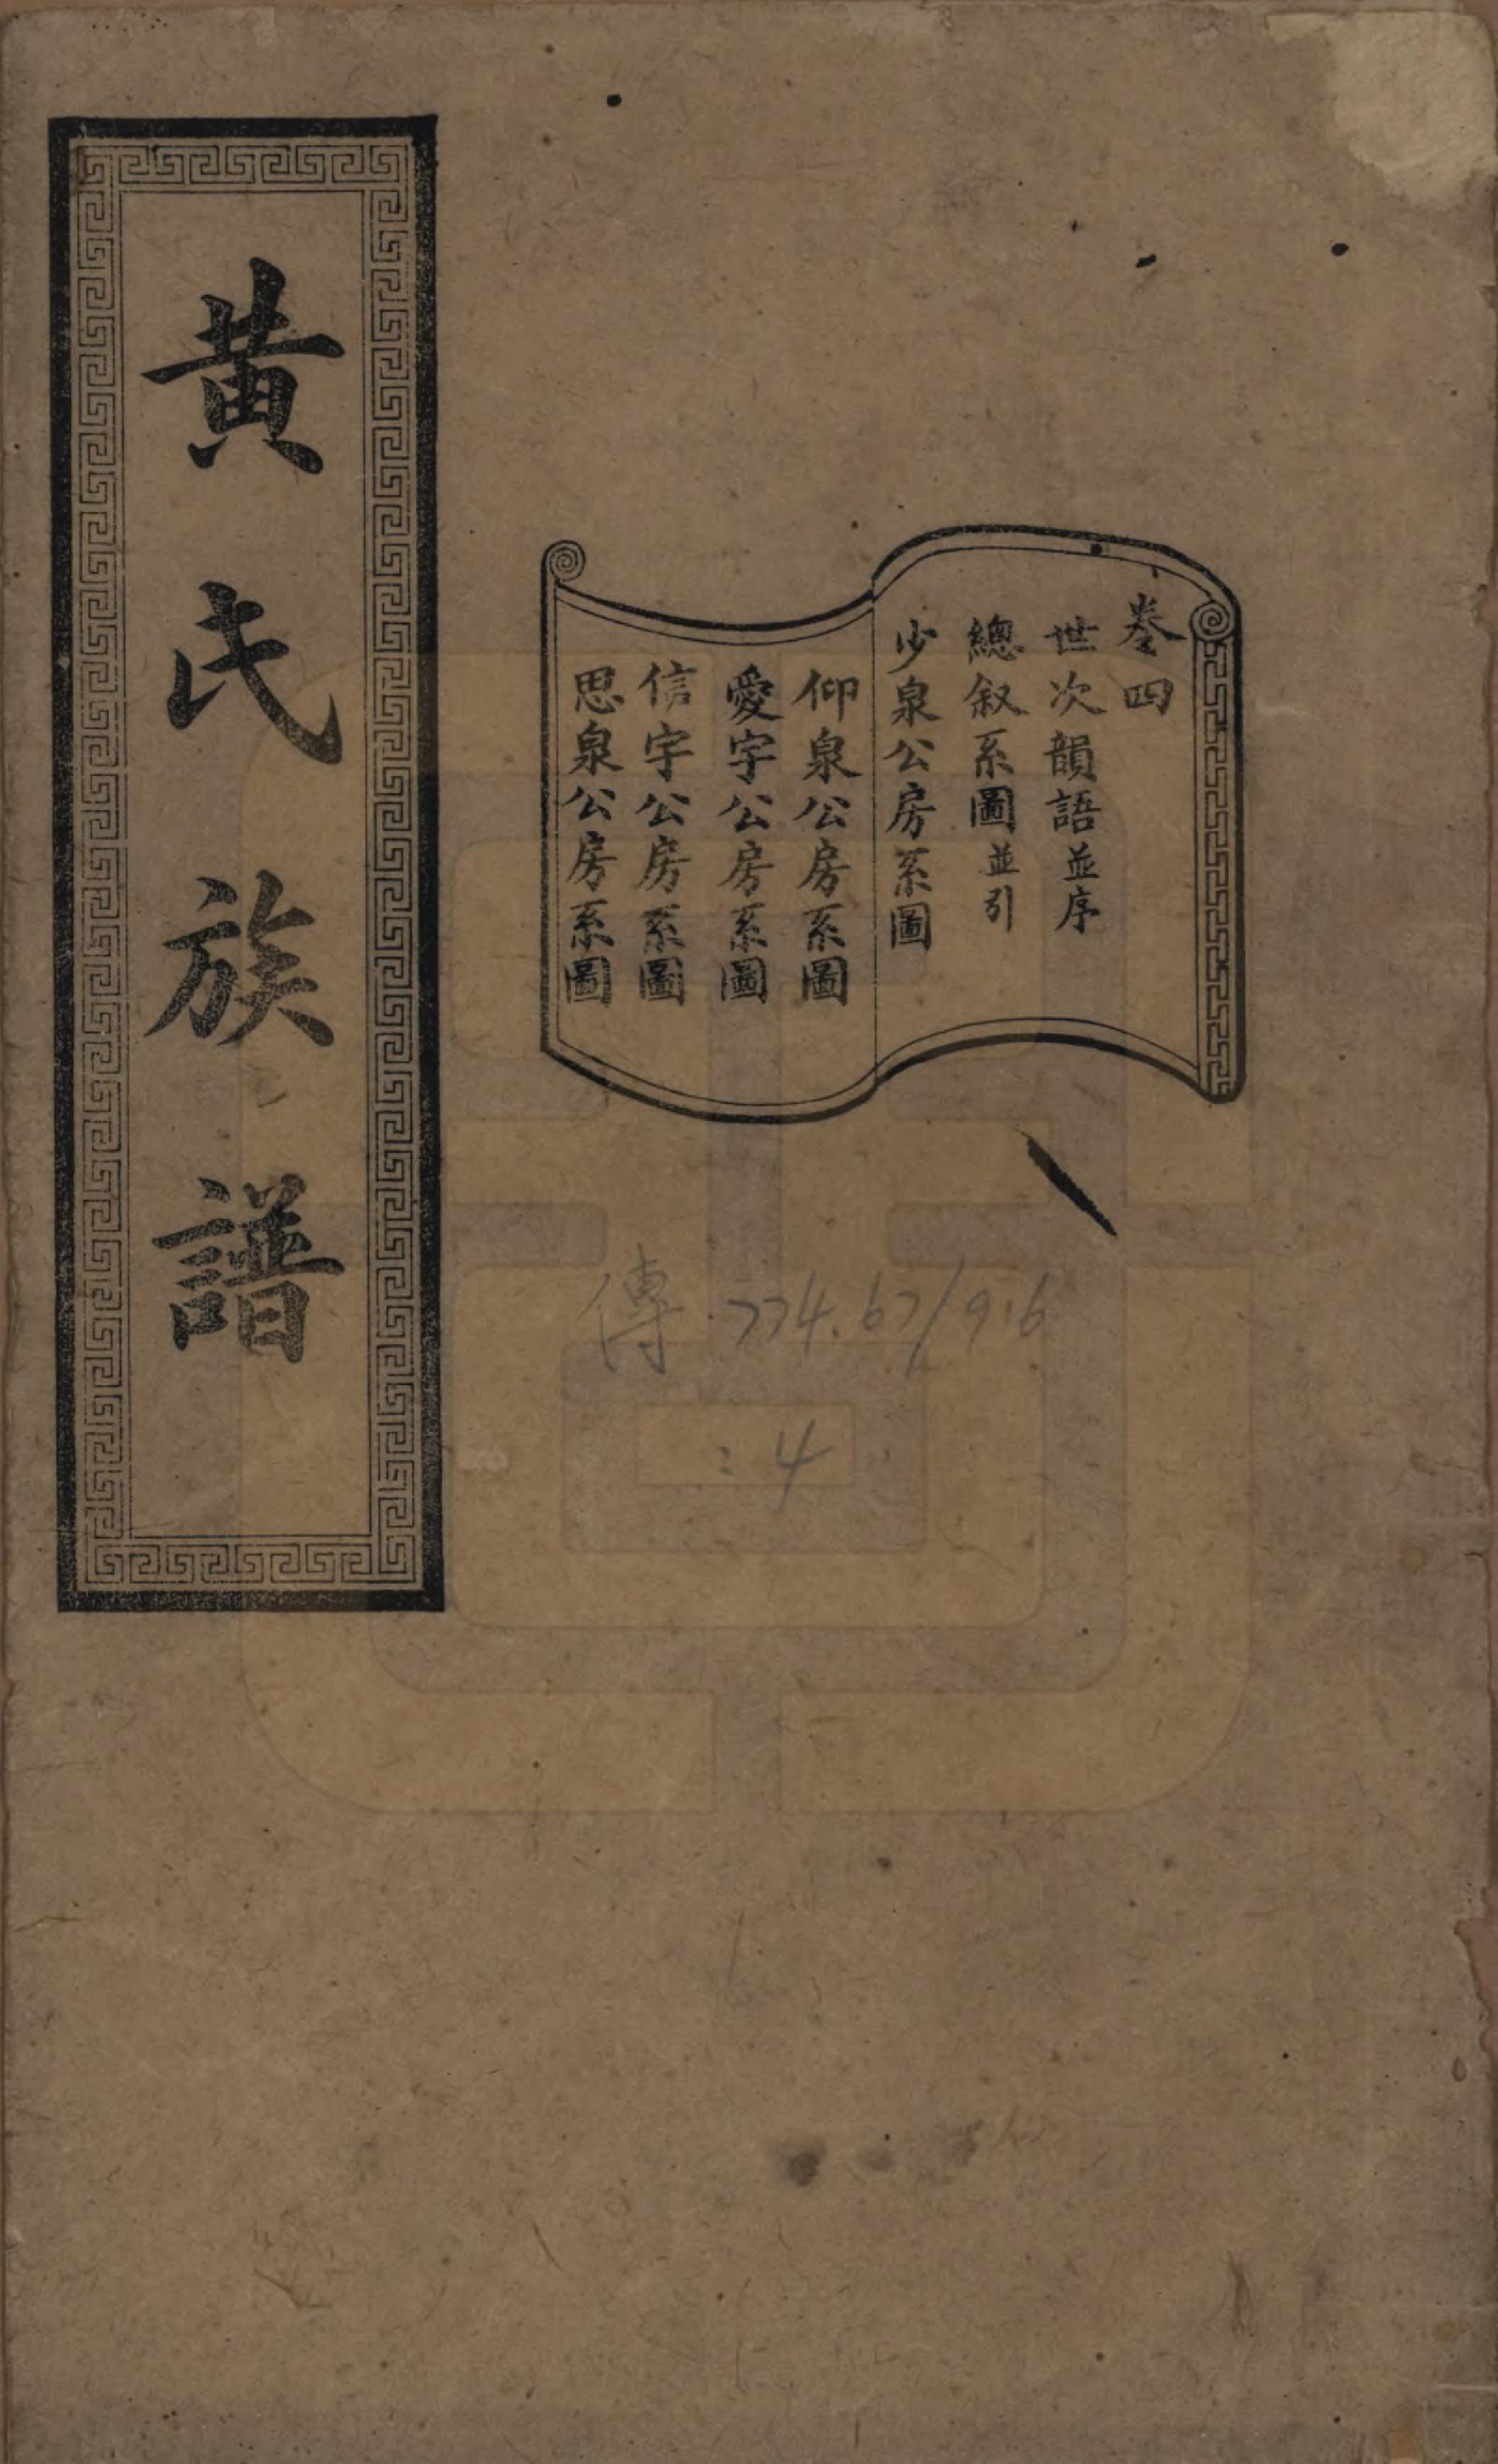 卷四
世次韻語並序
總叙系圖並引
少泉公房系圖
仰泉公房系圖
愛宇公房系圖
信宇公房系圖
思泉公房系圖
黃氏族譜
傳·774.67/916
:4